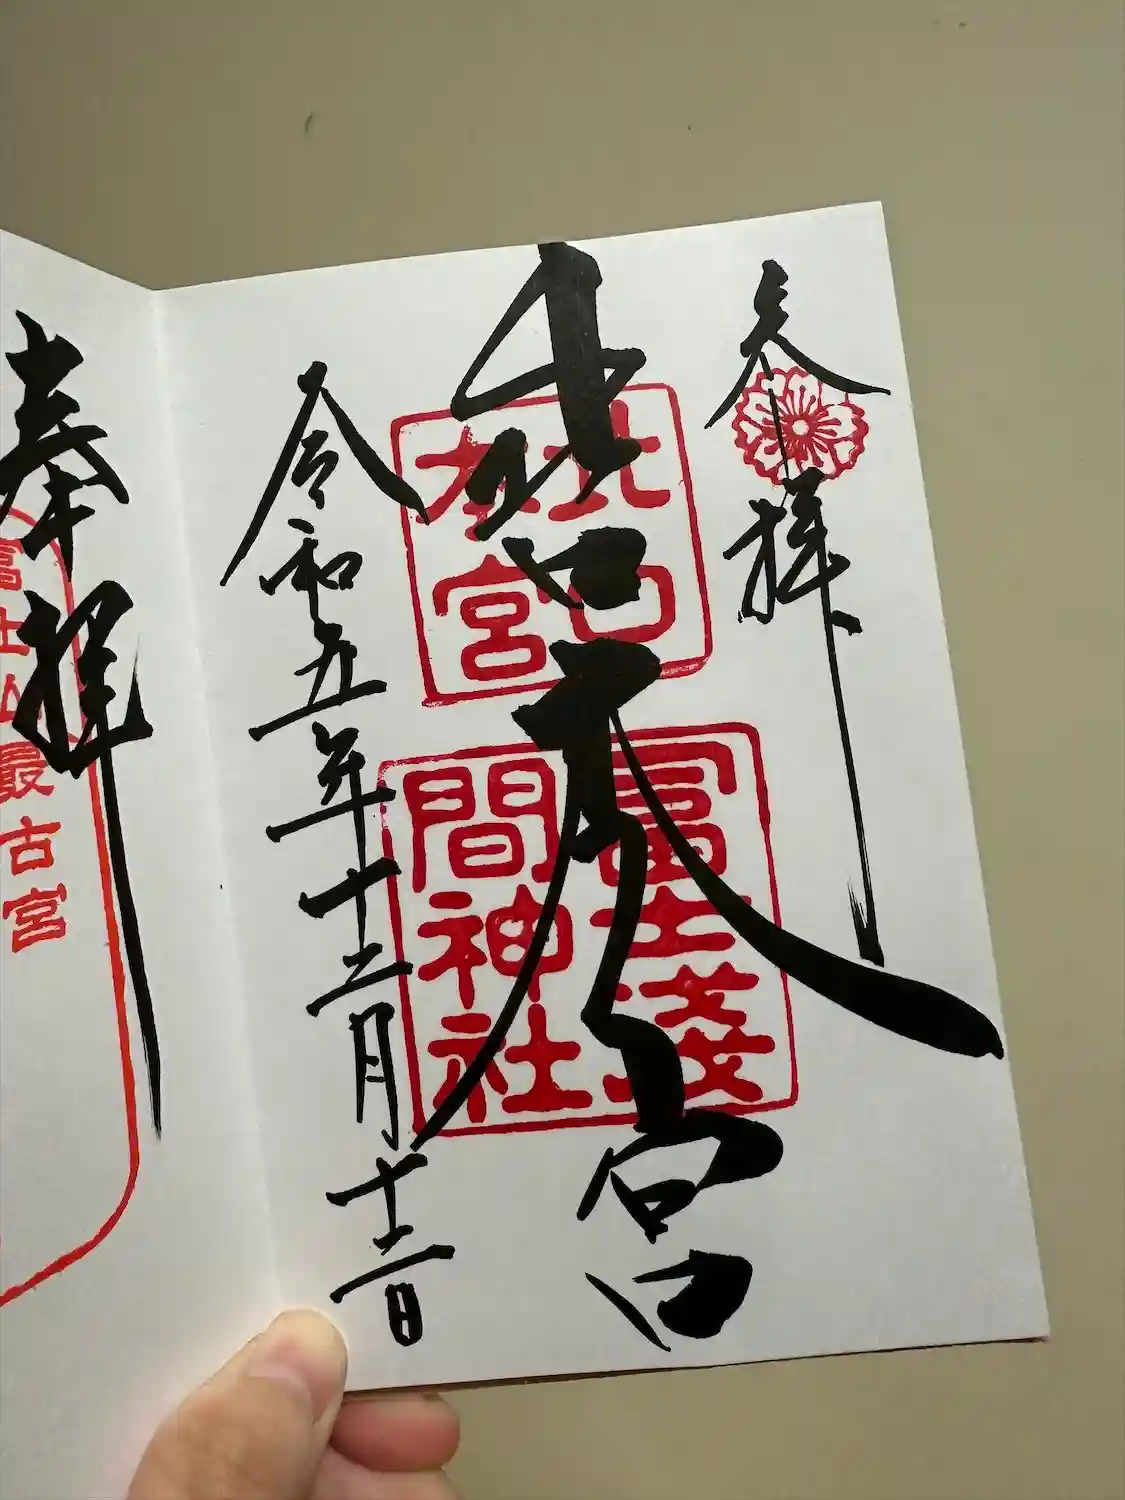 奉拝
北口本宮
北口
本宮
冨士淺
間神社
令和五年十二月十二日
奉拝
冨士山最古宮